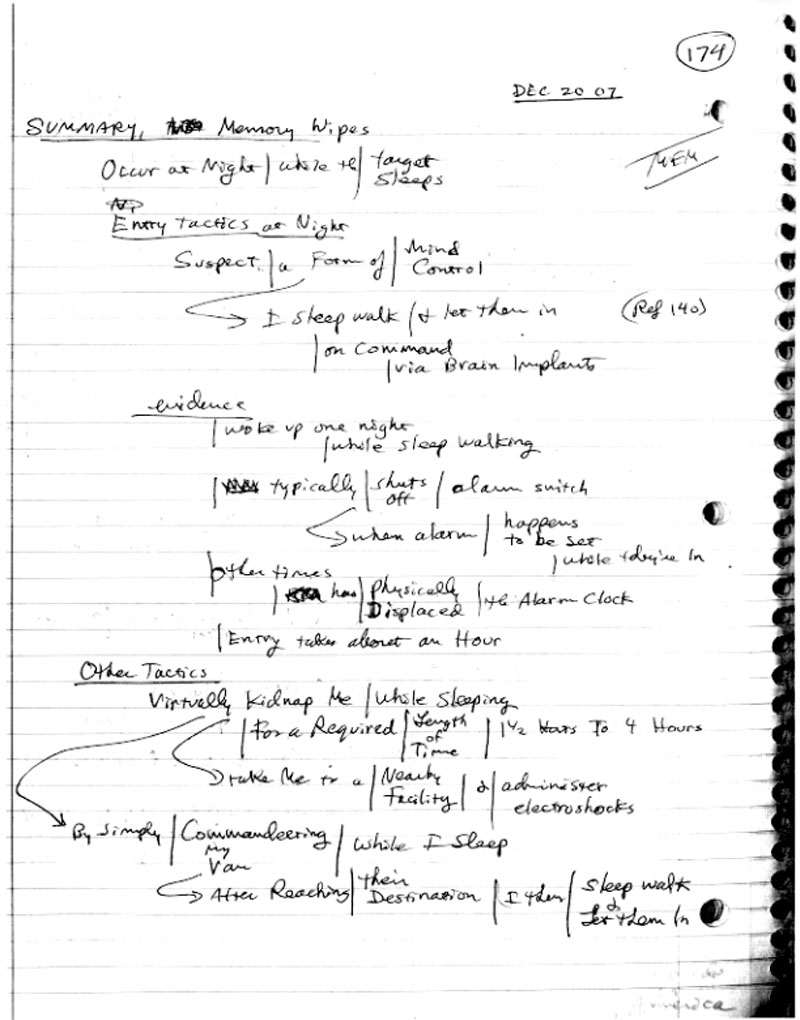 174
DEC 20 07
SUMMARY, Memory Wipes
MEM
Occur at Night | while th | target
Sleeps
Entry Tactics at Night
Suspect | a Form of | Mind
Control
I sleep walk | & let them in (Ref 140)
| on Command
| via Brain Implants
evidence
| woke up one night
| while sleep walking
| typically | shuts
off | alarm switch
when alarm | happens
to be set
| while + drive In
other times
| has | Physically
Displaced | th Alarm Clock
| Entry takes about an Hour
Other Tactics
Virtually Kidnap Me | While Sleeping
| For a Required | Length
of
Time | 1 1/2 Hours To 4 Hours
take Me to a | Nearby
Facility | & | administer
electroshocks
By simply | Commandeering
my
Van | While I Sleep
After Reaching | their
Destination | I then | Sleep walk
&
let them In
America